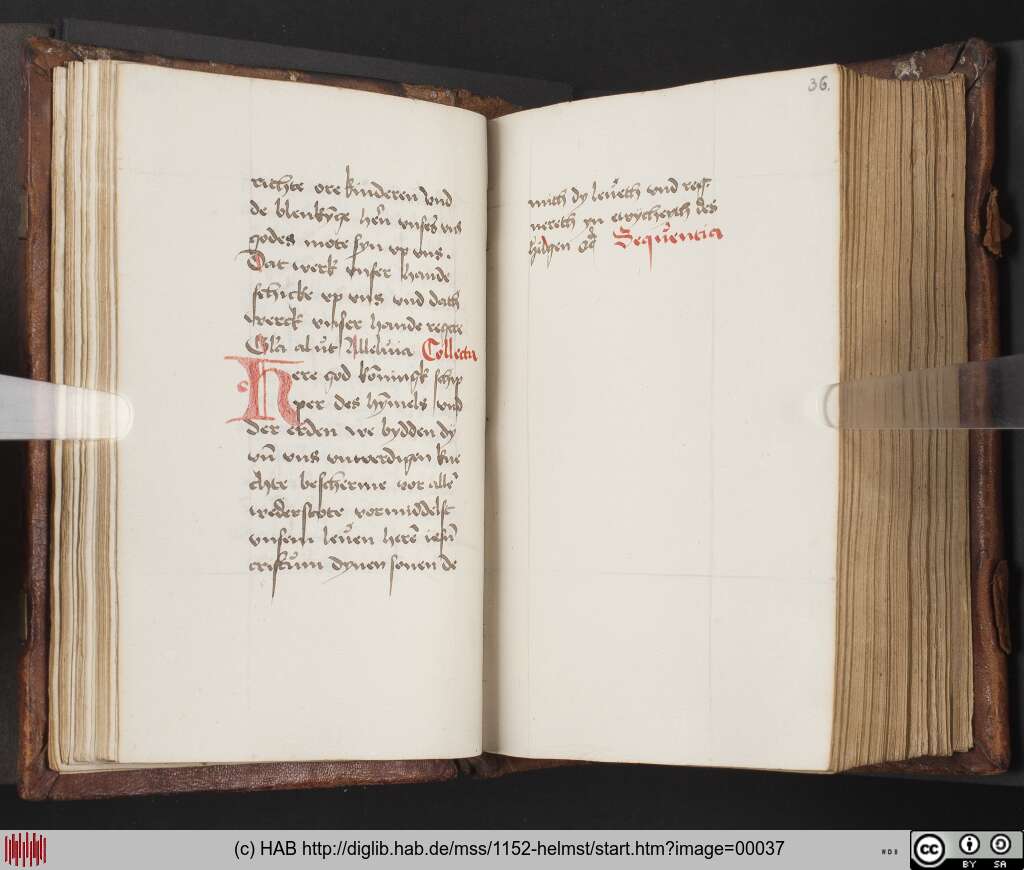 richte ore kinderen vnd
de blenkẏge hern̄ vnses vns
godes mote syn vp vns.
Dat werk vnser hande
schicke vp vns vnd dath
werck vnser hande regete
Gl'a al ut Alleluia Collecta
Here god kōningk schip
per des hẏmels vnd
der erden we bydden dy
vn̄ vns vnwerdigen kne
chte bescherme vor allē
wederstote vormiddelst
vnsem leuen herē iesū
cristum dynen sonen de
36.
mith dy leueth vnd reg-
nereth yn ewycheyth des
hilgen Sequencia
(c) HAB http://diglib.hab.de/mss/1152-helmst/start.htm?image=00037
WDB
cc BY SA